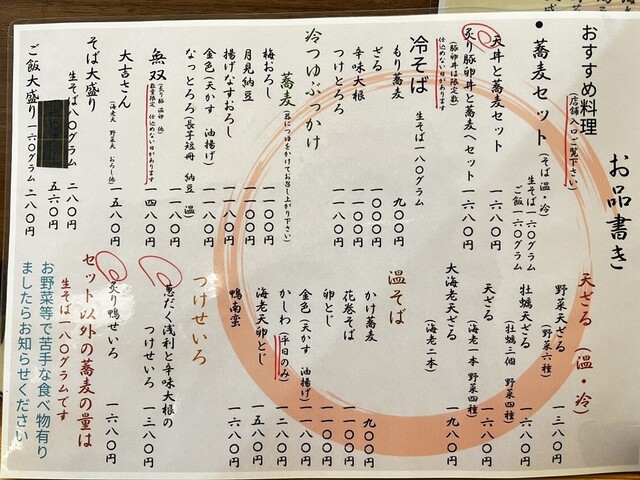 お品書き
おすすめ料理
(店舗入口ご覧下さい)
・蕎麦セット(そば温・冷)
生そば一六〇グラム
ご飯一六〇グラム
天丼と蕎麦セット 一六八〇円
炙り豚卵丼と蕎麦へセット 一六八〇円
(豚卵丼は限定数)
仕込めない日があります
冷そば 生そば一八〇グラム
もり蕎麦 九〇〇円
ざる 一〇〇〇円
辛味大根 一一〇〇円
つけとろろ 一一八〇円
冷つゆぶっかけ
蕎麦(器につゆをかけてお召し上がり下さい)
梅おろし 一一〇〇円
月見納豆 一一〇〇円
揚げなすおろし 一一八〇円
金色(天かす 油揚げ) 一一〇〇円
なっとろろ(長子短冊 納豆 温) 一一八〇円
無双 一四八〇円
数量限定 仕込めない日があります
大吉さん(海老天 野菜天 おろし他) 一五八〇円
そば大盛り
生そば八〇グラム 二八〇円
五六〇円
ご飯大盛り 一六〇グラム 二八〇円
天ざる(温・冷)
野菜天ざる 一三八〇円
(野菜六種)
牡蠣天ざる 一六八〇円
(牡蠣三個 野菜四種)
天ざる 一六八〇円
(海老一本 野菜四種)
大海老天ざる 一九八〇円
(海老二本)
温そば
かけ蕎麦 九〇〇円
花巻そば 一一〇〇円
卵とじ 一一〇〇円
金色(天かす 油揚げ) 一一〇〇円
かしわ(平日のみ) 一二八〇円
海老天卵とじ 一五八〇円
鴨南蛮 一六八〇円
つけせいろ
具だく浅利と辛味大根の
つけせいろ 一三八〇円
炙り鴨せいろ 一六八〇円
セット以外の蕎麦の量は
生そば一八〇グラムです
お野菜等で苦手な食べ物有り
ましたらお知らせください